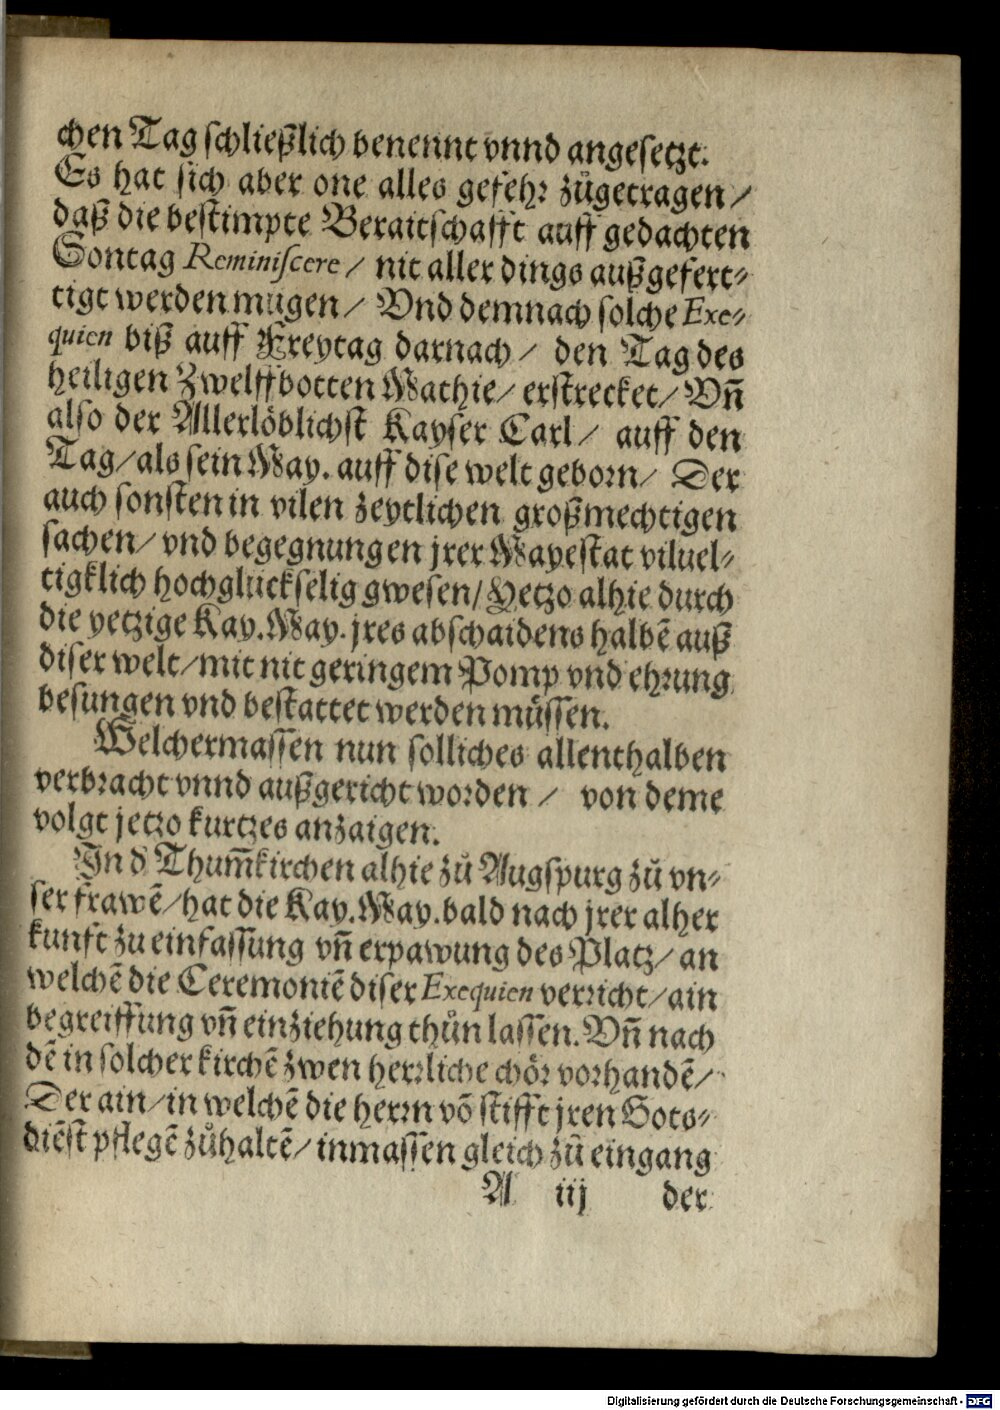 chen Tag schließlich benennt vnnd angesetzt.
Es hat sich aber one alles gefehr zůgetragen /
daß die bestimpte Beraitschafft auff gedachten
Sontag Reminiscere / nit aller dings außgefert⸗
tigt werden mügen / Vnd demnach solche Exe⸗
quien biß auff Freytag darnach / den Tag des
heiligen Zwelffbotten Mathie / erstrecket / Vñ
also der Allerlöblichst Kayser Carl / auff den
Tag / als sein May. auff dise welt geborn / Der
auch sonsten in vilen zeytlichen großmechtigen
sachen / vnd begegnungen jrer Mayestat viluel⸗
tigklich hochglückselig gwesen / Yetzo alhie durch
die yetzige Kay. May. jres abschaidens halbē auß
diser welt / mit nit geringem Pomp vnd ehrung
besungen vnd bestattet werden müssen.
Welchermassen nun solliches allenthalben
verbracht vnnd außgericht worden / von deme
volgt jetzo kurtzes anzaigen.
In d Thum̄kirchen alhie zů Augspurg zů vn⸗
ser frawē / hat die Kay. May. bald nach jrer alher
kunft zu einfassung vñ erpawung des Platz / an
welchē die Ceremoniē diser Exequien verricht / ain
begreiffung vñ einziehung thůn lassen. Vñ nach
dē in solcher kirchē zwen herrliche chör vorhandē /
Der ain / in welchē die herrn vō stifft jren Gots⸗
diēst pflegē zůhaltē / inmassen gleich zů eingang
A iij der
Digitalisierung gefördert durch die Deutsche Forschungsgemeinschaft - DFG